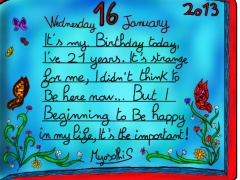 2013
Wednesday 16 January
It's my Birthday today,
I've 21 years. It's strange
for me, I didn't think to
Be here now... But I
Beginning to Be happy
in my life, It's the important!